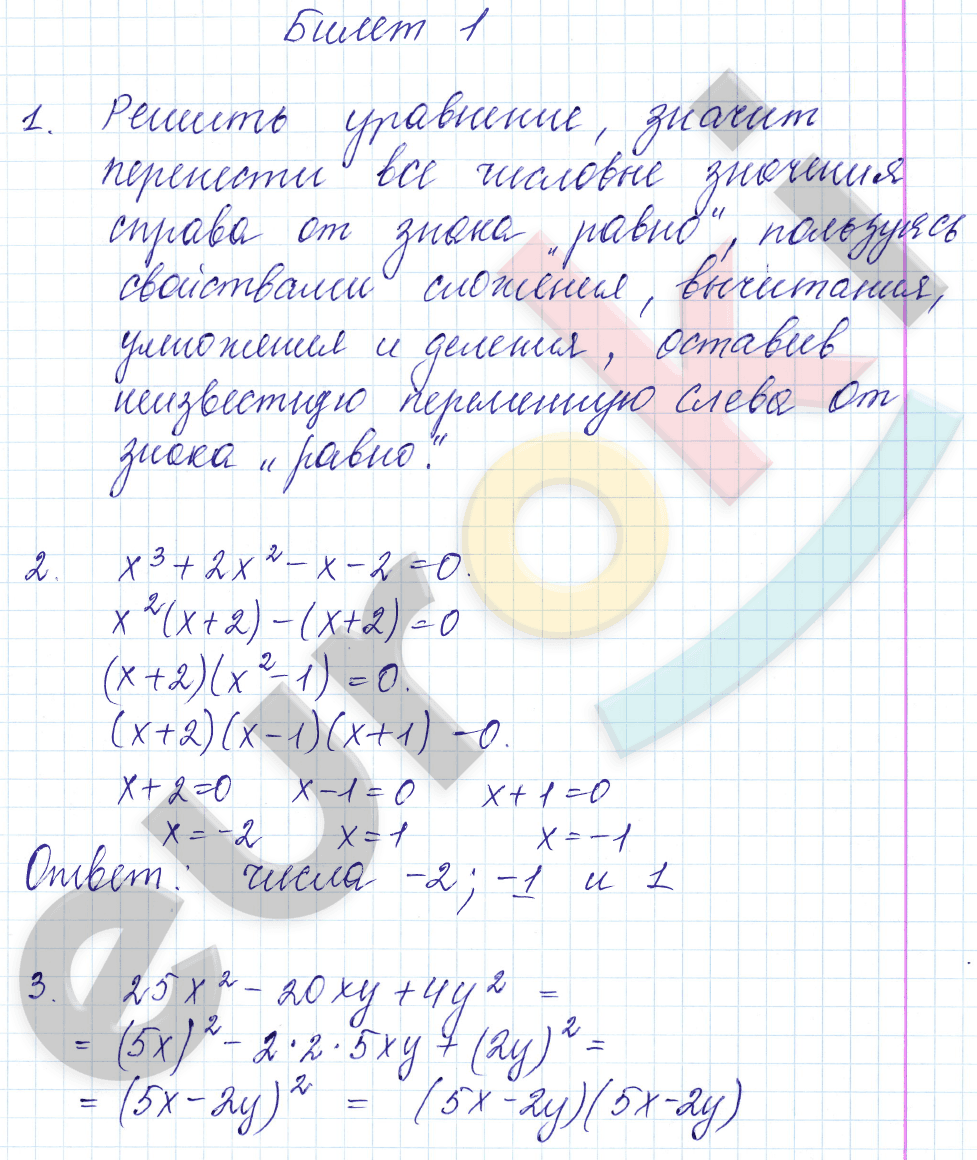 Билет 1
1. Решить уравнение, значит
перенести все числовые значения
справа от знака „равно“, пользуясь
свойствами сложения, вычитания,
умножения и деления, оставив
неизвестную переменную слева от
знака „равно“.
2. x³ + 2x² - x - 2 = 0.
x²(x+2) - (x+2) = 0
(x+2)(x²-1) = 0.
(x+2)(x-1)(x+1) - 0.
x+2=0 x-1=0 x+1=0
x=-2 x=1 x=-1
Ответ: числа -2; -1 и 1
3. 25x² - 20xy + 4y² =
= (5x)² - 2·2·5xy + (2y)² =
= (5x-2y)² = (5x-2y)(5x-2y)
euroki